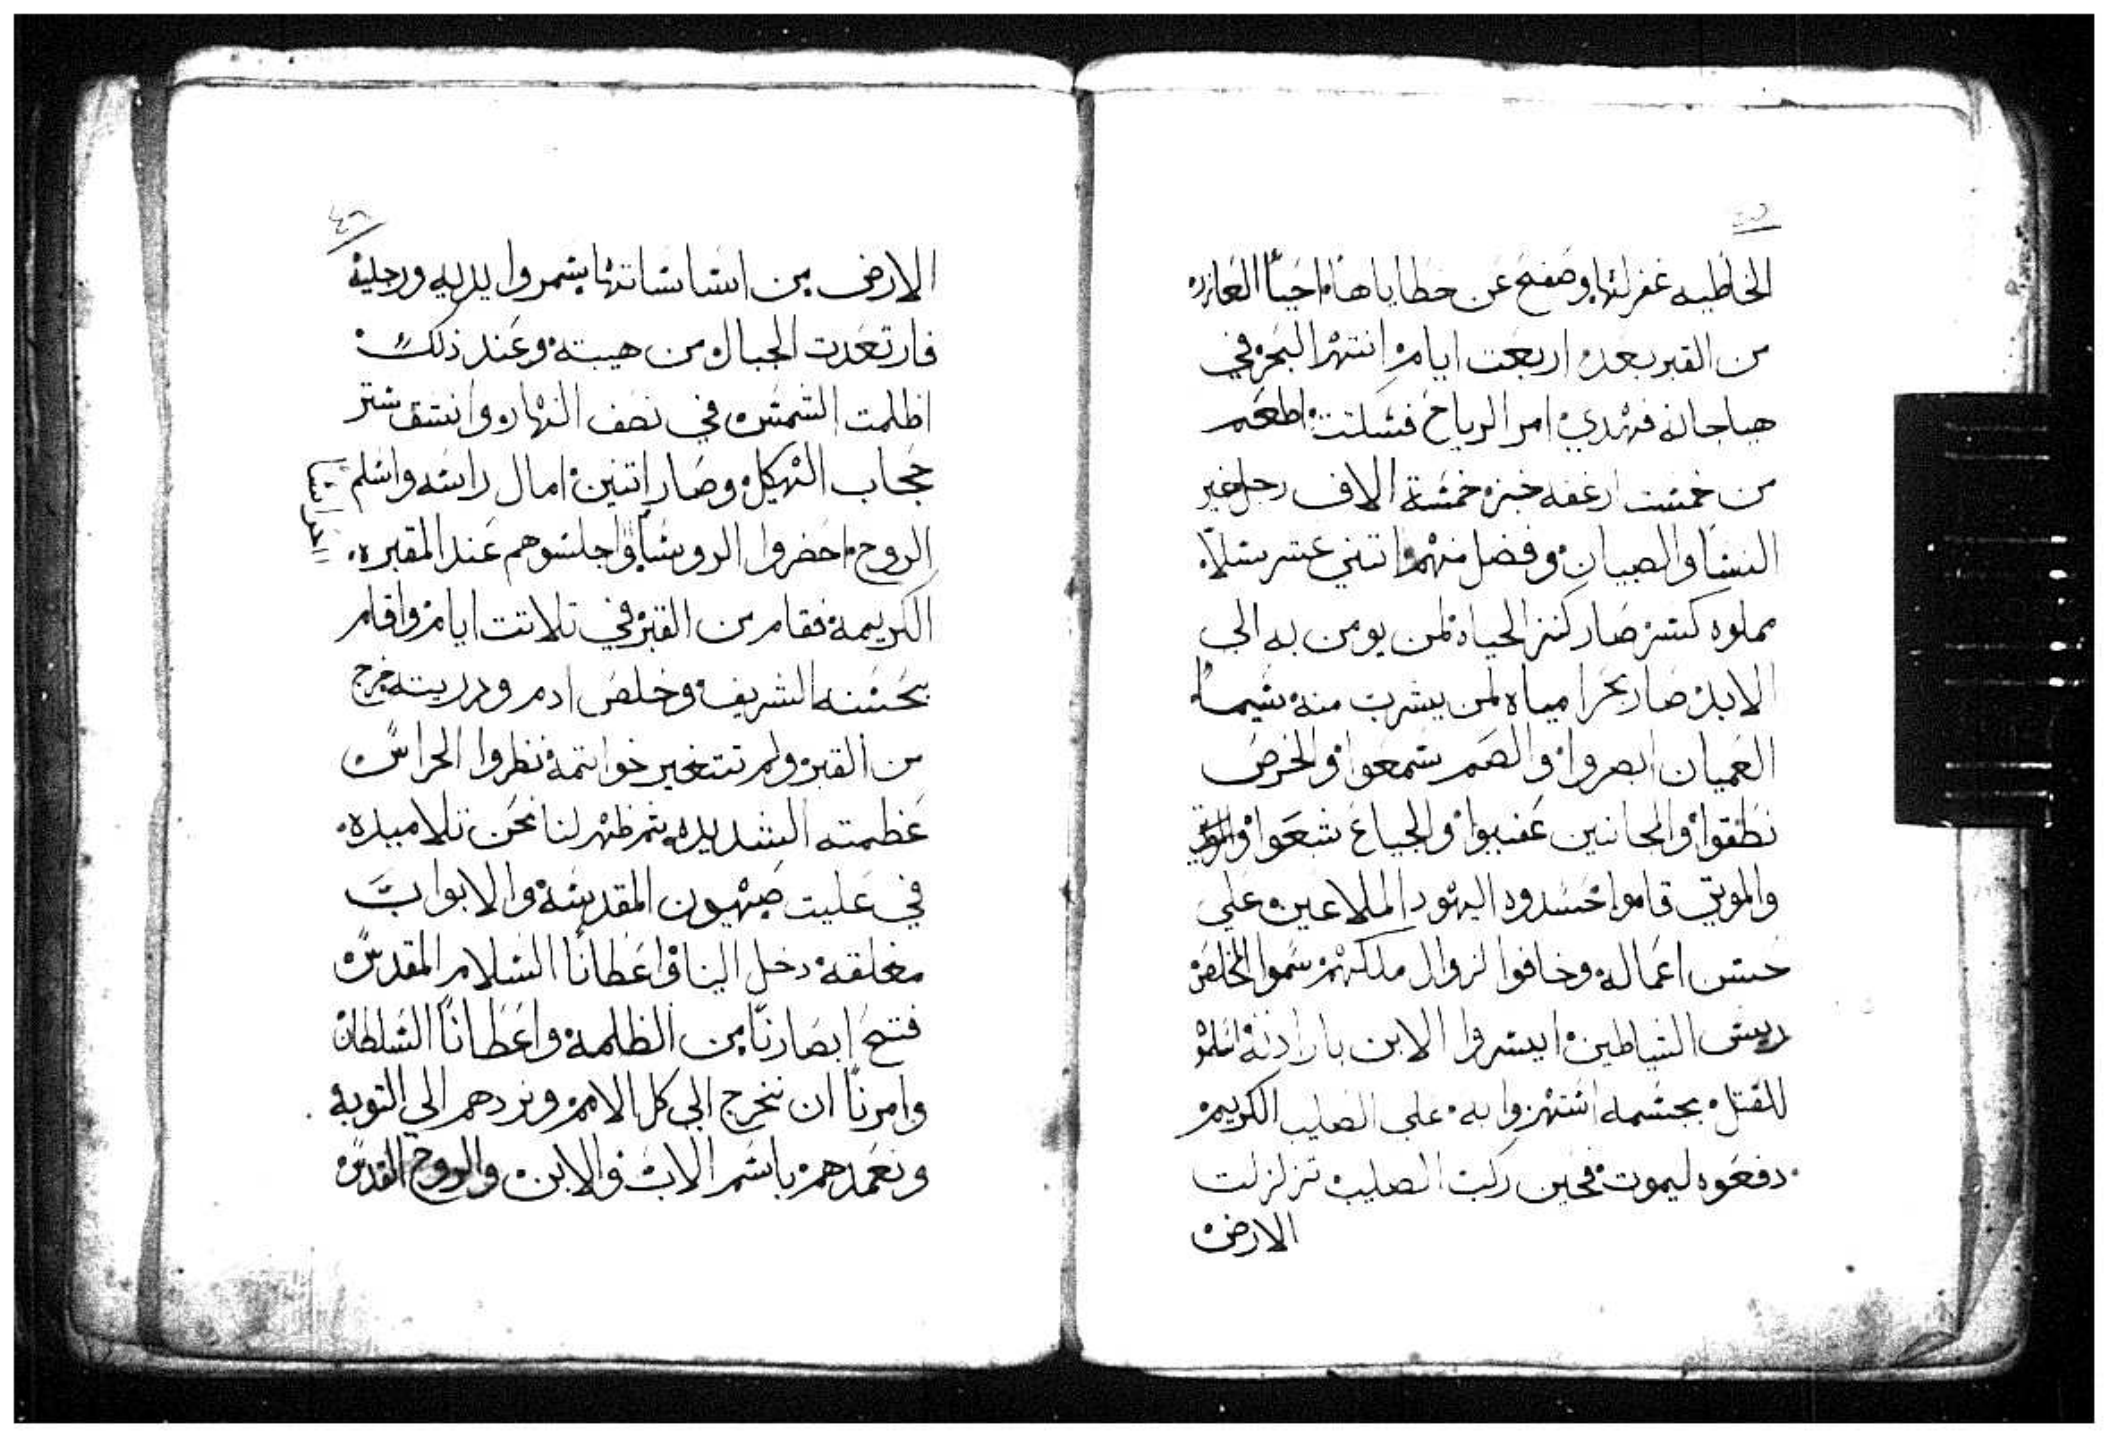 الخاطيه غفر لها وصفح عن خطاياها احيا العازر
من القبر بعد اربعت ايام انتهر البحر في
هياجانه فهدي امر الرياح فسكتت اطعم
من خمست ارغفه خبز خمسة الاف رجل غير
النسا والصبيان وفضل منهم اتني عشر سلا
مملوه كسر صار كنز الحياه لمن يومن به الي
الابد صار بحرا مياه لمن يشرب منه شيما
العميان ابصروا والصم سمعوا والخرص
نطقوا والمجانين عفيوا والجياع شبعوا
والموتي قاموا حسدوه اليهود الملاعين علي
حسن اعماله وخافوا لزوال ملكهم سموا المخلص
ريس الشياطين ايسروا الابن بارادته اسلم
للقتل بجسمه اشتهزوا به علي الصليب الكريم
دفعوه ليموت فحين ركب الصليب تزلزلت
الارض
٤٦
الارض من اساساتها سمروا يديه ورجليه
فارتعدت الجبال من هيبته وعند ذلك
اظلمت الشمس في نصف النهار وانشق ستر
حجاب الهيكل وصار اتنين امال راسه واسلم
الروح احضروا الروسا واجلسوهم عند المقبره
الكريمة فقام من القبر في تلاتت ايام واقام
بحسنه الشريف وخلص ادم ودريته خرج
من القبر ولم تتغير خواتمه نظروا الحراس
عظمته الشديده تم ظهر لنا نحن تلاميده
في عليت صهيون المقدسة والابواب
مغلقة دخل الينا واعطانا السلام المقدس
فتح ابصارنا من الظلمة واعطانا السلطان
وامرنا ان نخرج الي كل الامم ونردهم الي التوبة
ونعمدهم باسم الاب والابن والروح القدس